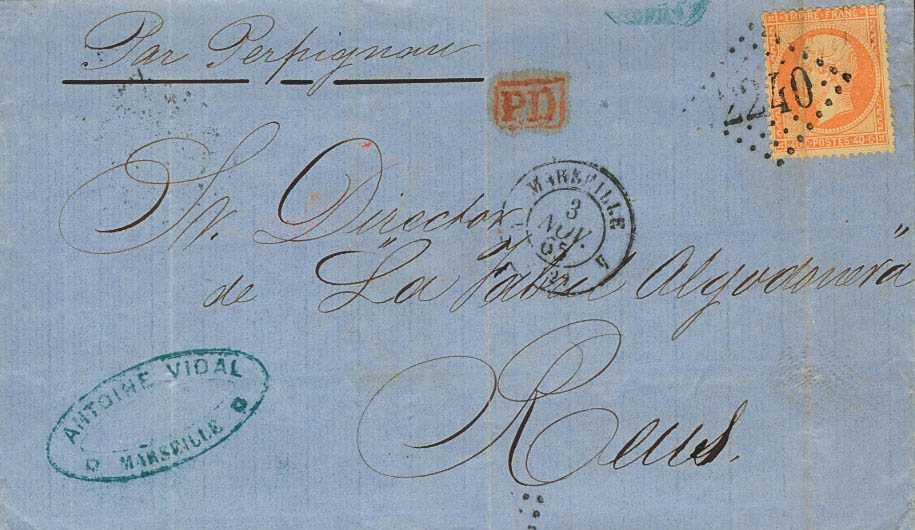 Par Perpignan
EMPIRE FRANC
2240
40 C POSTES 40 C
PD
MARSEILLE
3
NOV.
65
Sr. Director
de "La Fabril Algodonera"
Reus.
ANTOINE VIDAL
MARSEILLE